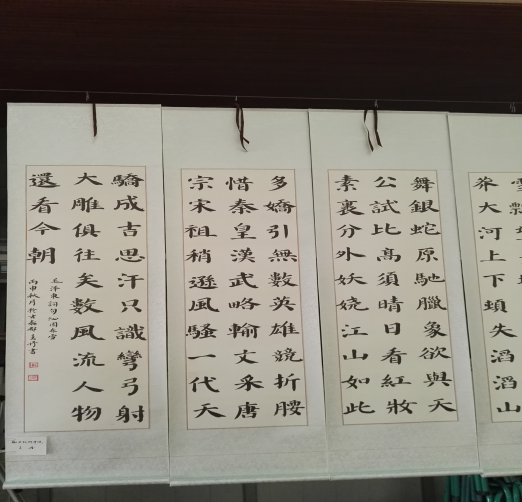 雪飄
莽大河上下頓失滔滔山
舞銀蛇原馳臘象欲與天
公試比高須晴日看紅妝
素裹分外妖嬈江山如此
多嬌引無數英雄競折腰
惜秦皇漢武略輸文采唐
宗宋祖稍遜風騷一代天
驕成吉思汗只識彎弓射
大雕俱往矣數風流人物
還看今朝
毛澤東詞句沁園春雪
丙申秋月於書